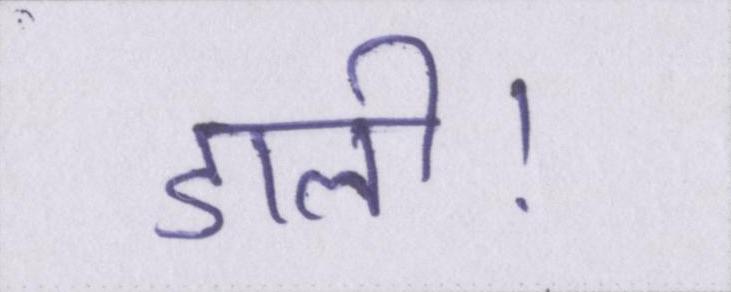 डाली!